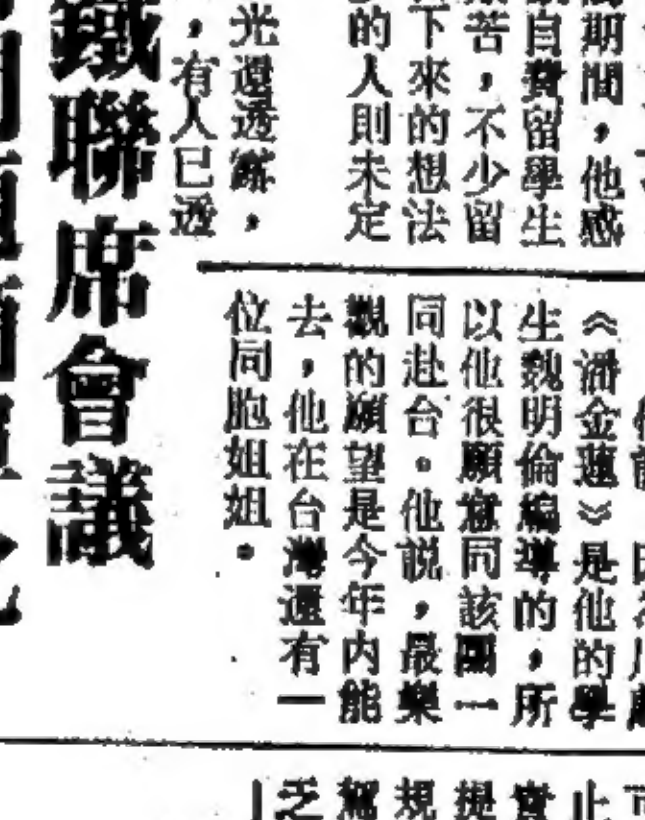 期間，他感
自費留學生
苦，不少留
下來的想法
的人則未定
光還透露，
，有人已透
《潘金蓮》是他的學
生魏明倫編導的，所
以他很願意同該團一
同赴台。他說，最樂
觀的願望是今年內能
去，他在台灣還有一
位同胞姐姐。
鐵聯席會議
止
實
提
規
駕
乏